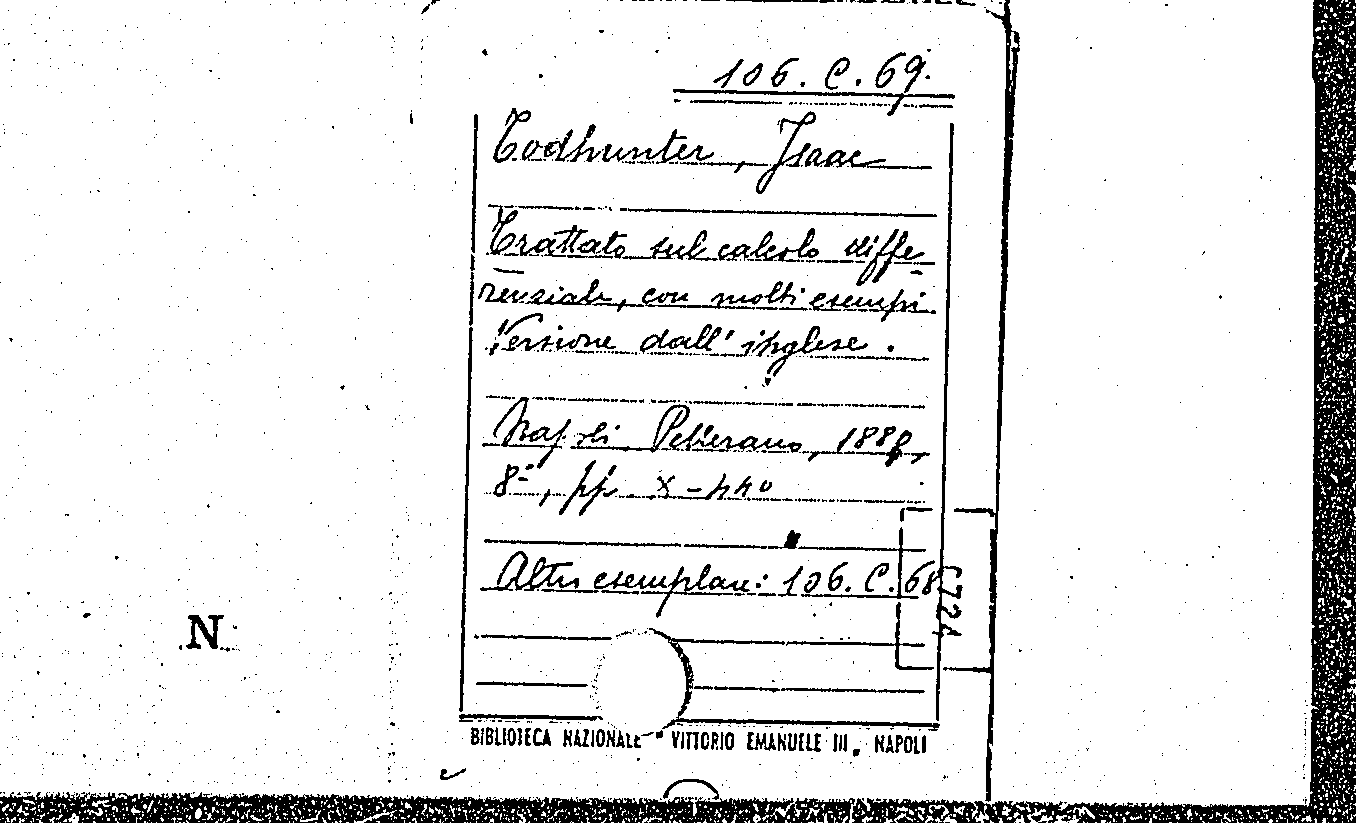 106. C. 69.
Todhunter, Isaac
Trattato sul calcolo diffe-
renziale, con molti esempi.
Versione dall' inglese.
Napoli Pellerano, 188
8°, pp. X-440
Altro esemplare: 106. C. 68
N
BIBLIOTECA NAZIONALE VITTORIO EMANUELE III. NAPOLI